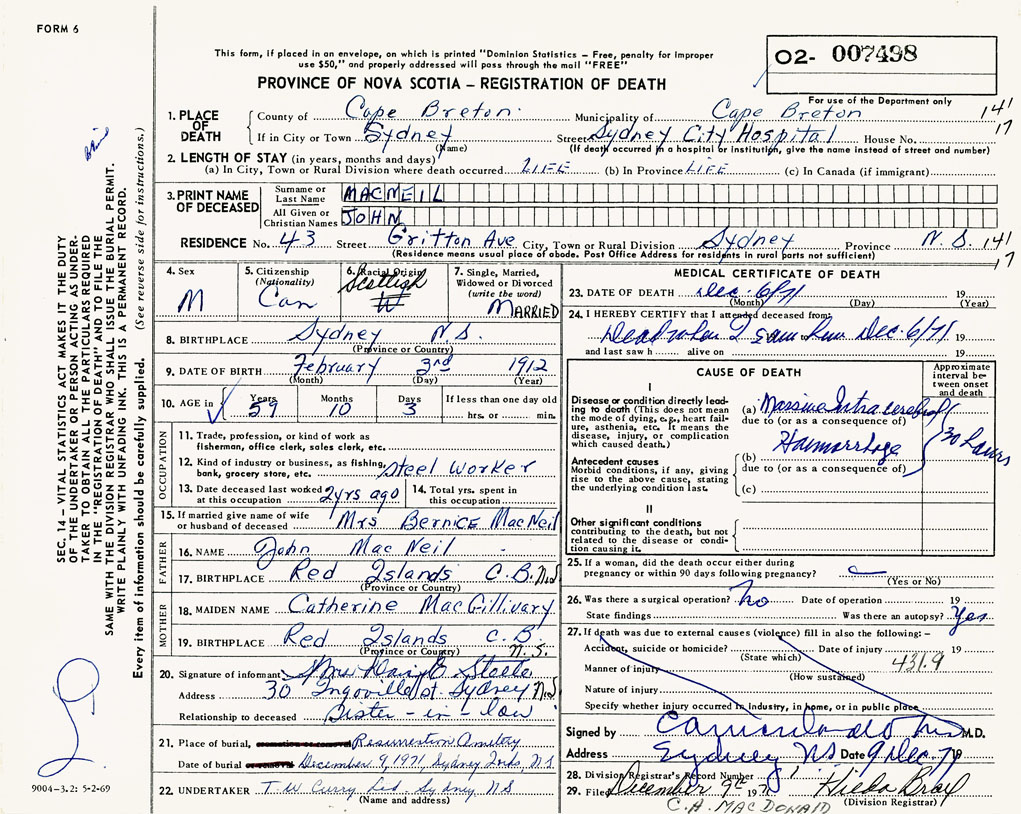 FORM 6
This form, if placed in an envelope, on which is printed "Dominion Statistics – Free, penalty for improper
use $50," and properly addressed will pass through the mail "FREE"
02- 007498
PROVINCE OF NOVA SCOTIA – REGISTRATION OF DEATH
For use of the Department only
1. PLACE OF DEATH
County of Cape Breton Municipality of Cape Breton 141
If in City or Town Sydney Street Sydney City Hospital House No. 17
(Name) (If death occurred in a hospital or institution, give the name instead of street and number)
2. LENGTH OF STAY (in years, months and days)
(a) In City, Town or Rural Division where death occurred LIFE (b) In Province LIFE (c) In Canada (if immigrant)
3. PRINT NAME OF DECEASED
Surname or Last Name MACNEIL
All Given or Christian Names JOHN
RESIDENCE No. 43 Street Gritton Ave City, Town or Rural Division Sydney Province N.S. 141
(Residence means usual place of abode. Post Office Address for residents in rural parts not sufficient) 17
4. Sex M
5. Citizenship (Nationality) Can
6. Racial Origin Scottish W
7. Single, Married, Widowed or Divorced (write the word) MARRIED
8. BIRTHPLACE Sydney N.S.
(Province or Country)
9. DATE OF BIRTH February 3rd 1912
(Month) (Day) (Year)
10. AGE in Years 59 Months 10 Days 3 If less than one day old
hrs. or min.
OCCUPATION
11. Trade, profession, or kind of work as
fisherman, office clerk, sales clerk, etc.
12. Kind of industry or business, as fishing,
bank, grocery store, etc. Steel Worker
13. Date deceased last worked at this occupation 2 yrs ago
14. Total yrs. spent in this occupation
15. If married give name of wife
or husband of deceased Mrs Bernice MacNeil
FATHER
16. NAME John MacNeil
17. BIRTHPLACE Red Islands C.B. N.S
(Province or Country)
MOTHER
18. MAIDEN NAME Catherine MacGillivary
19. BIRTHPLACE Red Islands C.B. N.S.
(Province or Country)
20. Signature of informant Mrs Steele
Address 30 Ingoville St. Sydney N.S
Relationship to deceased Sister-in-law
21. Place of burial, Resurrection
Date of burial December 9, 1971, Sydney N.S.
22. UNDERTAKER T. W Curry Ltd, Sydney, NS
(Name and address)
MEDICAL CERTIFICATE OF DEATH
23. DATE OF DEATH Dec. 6/71 19
(Month) (Day) (Year)
24. I HEREBY CERTIFY that I attended deceased from
Dead when I saw him Dec. 6/71 19
and last saw h alive on 19
CAUSE OF DEATH
Approximate interval between onset and death
I
Disease or condition directly leading to death (This does not
mean the mode of dying, e.g., heart failure,
asthenia, etc. It means the
disease, injury, or complication
which caused death.)
(a) Massive Intracerebral
due to (or as a consequence of)
Antecedent causes
Morbid conditions, if any, giving
rise to the above cause, stating
the underlying condition last.
(b) Haemorrhage
due to (or as a consequence of)
(c)
30 hours
II
Other significant conditions
contributing to the death, but not
related to the disease or condition
causing it.
25. If a woman, did the death occur either during
pregnancy or within 90 days following pregnancy?
(Yes or No)
26. Was there a surgical operation? No Date of operation 19
State findings Was there an autopsy? Yes
27. If death was due to external causes (violence) fill in also the following: –
Accident, suicide or homicide? Date of injury 19
(State which) 431.9
Manner of injury
(How sustained)
Nature of injury
Specify whether injury occurred in industry, in home, or in public place
Signed by M.D.
Address Sydney NS Date 9 Dec. 71 19
28. Division Registrar's Record Number
29. Filed December 9th 1971 Hilda
C. A. MACDONALD (Division Registrar)
SEC. 14 – VITAL STATISTICS ACT MAKES IT THE DUTY
OF THE UNDERTAKER OR PERSON ACTING AS UNDERTAKER
TO OBTAIN ALL THE PARTICULARS REQUIRED
IN THE "REGISTRATION OF DEATH" AND TO FILE THE
SAME WITH THE DIVISION REGISTRAR WHO SHALL ISSUE THE BURIAL PERMIT.
WRITE PLAINLY WITH UNFADING INK. THIS IS A PERMANENT RECORD.
Every item of information should be carefully supplied. (See reverse side for instructions.)
9004-3.2: 5-2-69